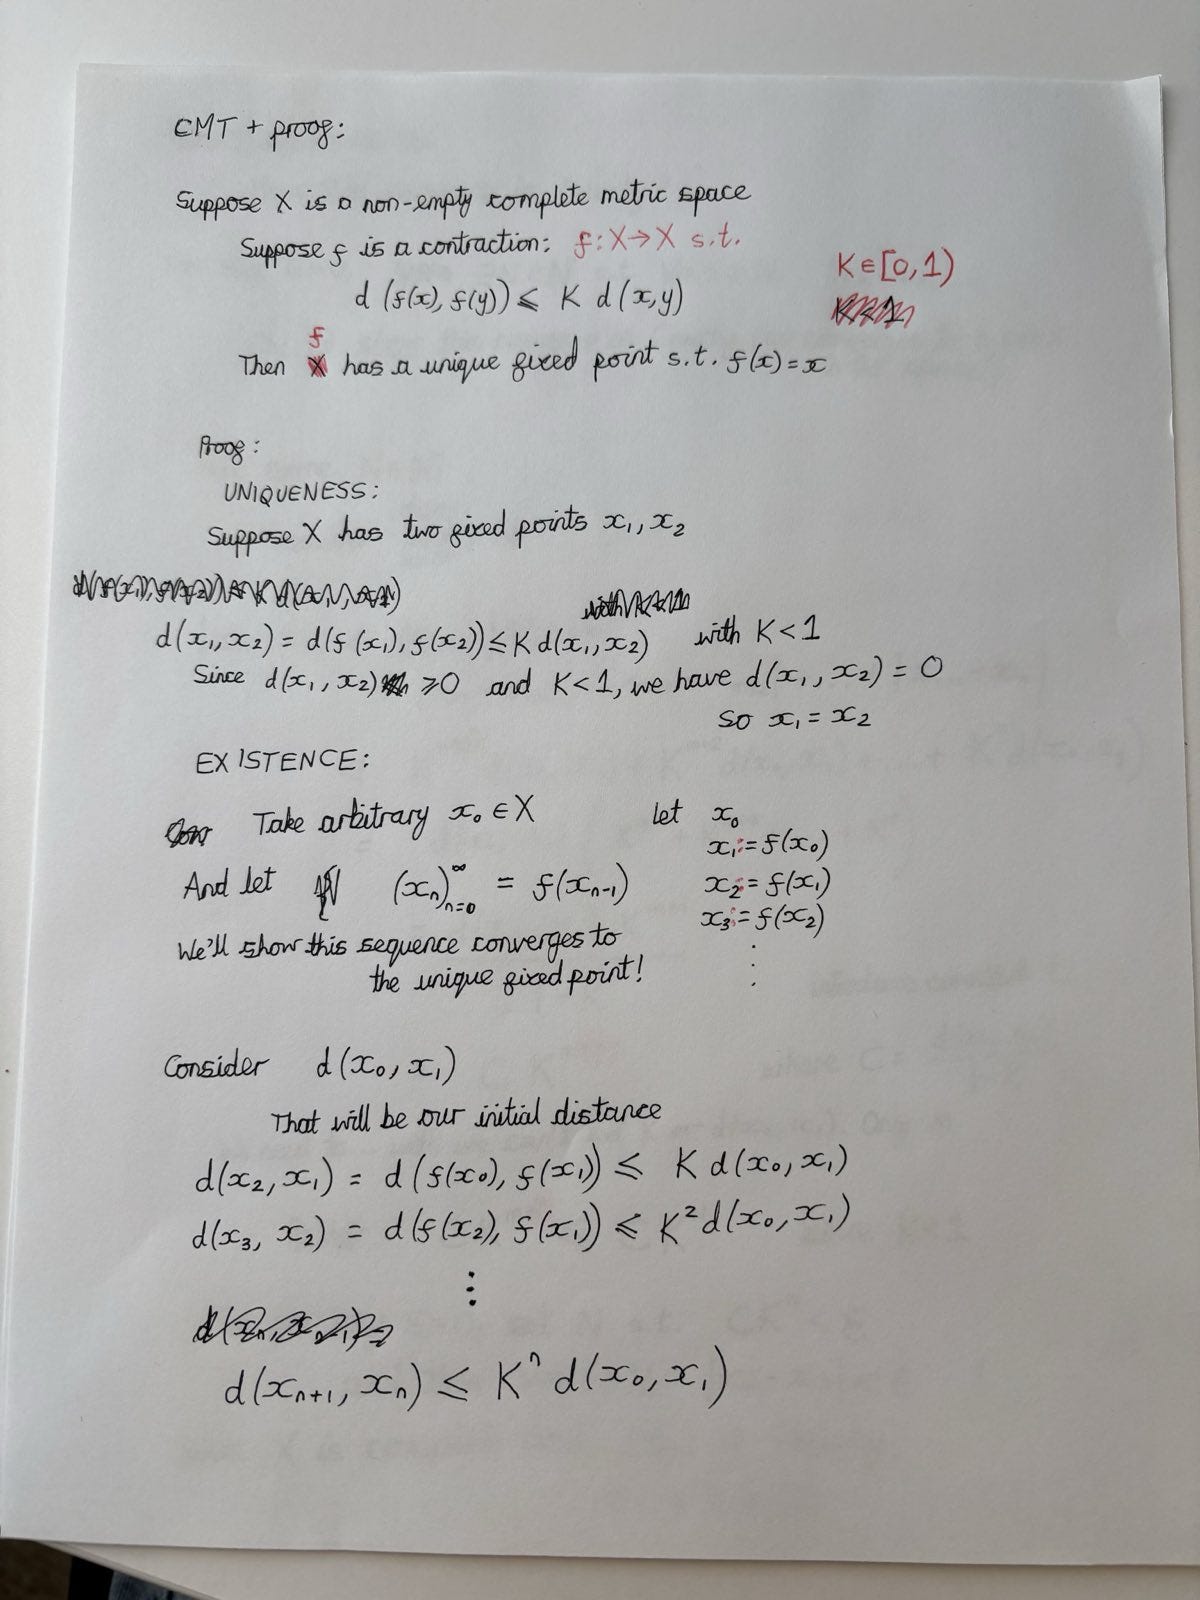 CMT + proof:
Suppose X is a non-empty complete metric space
Suppose f is a contraction: f: X→X s.t.
K∈[0,1)
d (f(x), f(y)) ⩽ K d(x,y)
K<1
f
Then X has a unique fixed point s.t. f(x)=x
Proof:
UNIQUENESS:
Suppose X has two fixed points x₁, x₂
with K<1
d(x₁, x₂) = d(f(x₁), f(x₂)) ≤ K d(x₁, x₂) with K<1
Since d(x₁, x₂) ⩾0 and K<1, we have d(x₁, x₂) = 0
so x₁ = x₂
EXISTENCE:
Take arbitrary x₀ ∈ X
And let (xₙ)_{n=0}^∞ = f(xₙ₋₁)
We'll show this sequence converges to
the unique fixed point!
Let x₀
x₁:= f(x₀)
x₂:= f(x₁)
x₃:= f(x₂)
⋮
Consider d(x₀, x₁)
That will be our initial distance
d(x₂, x₁) = d(f(x₀), f(x₁)) ⩽ K d(x₀, x₁)
d(x₃, x₂) = d(f(x₂), f(x₁)) ⩽ K² d(x₀, x₁)
⋮
d(xₙ₊₁, xₙ) ⩽ Kⁿ d(x₀, x₁)